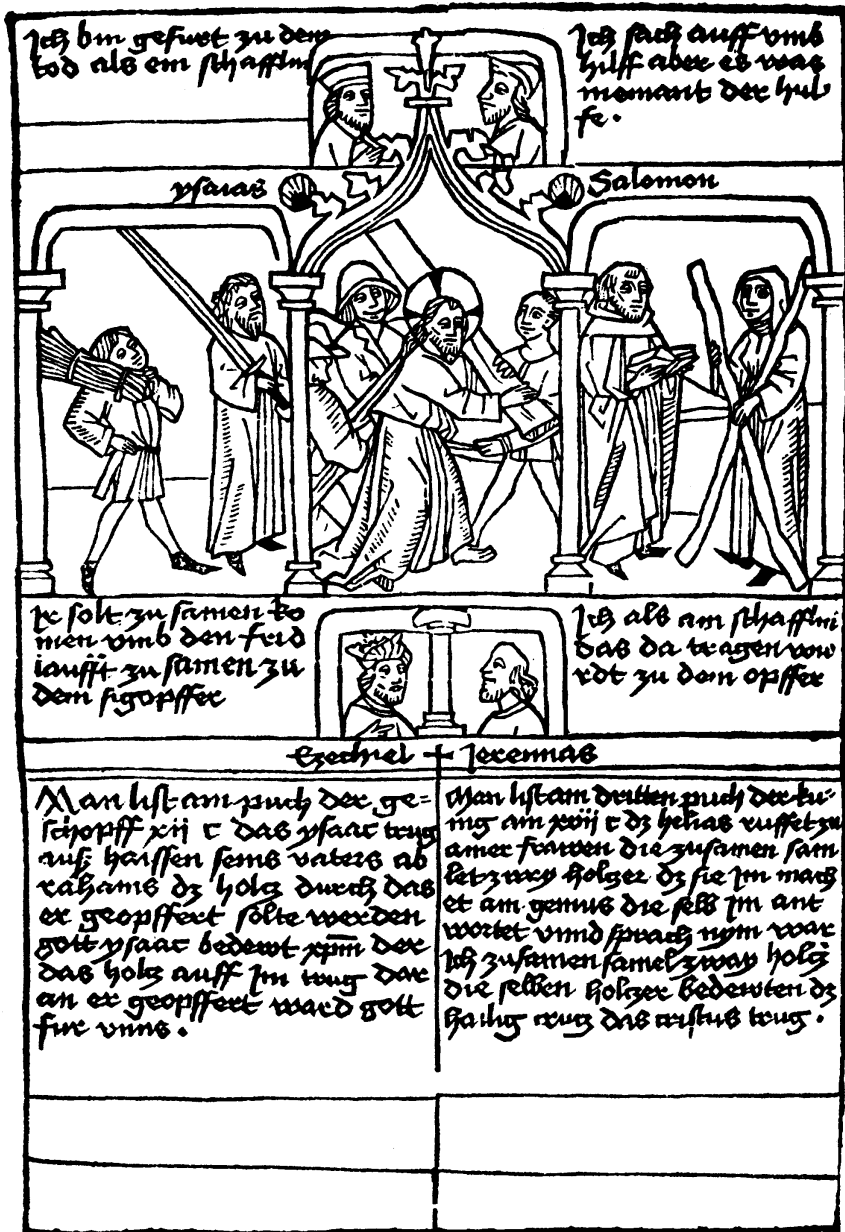 Ich bin gefurt zu dem
tod als ein schafflin
Ich sach auff vmb
hilff aber es was
niemant der hul
fe.
ysaias
Salomon
Ir solt zu samen ko
men vmb den frid
laufft zu samen zu
dem sigopffer
Ich als ain schafflin
das da tragen wu
rdt zu dem opffer
Ezechiel
Jeremias
Man list am puch der ge=
schopff xij c das ysaac trug
auß haissen seins vaters ab
rahams dz holtz durch das
er geopffert solte werden
gott ysaac bedewt xpm̄ der
das holtz auff Im trug dar
an er geopffert ward gott
fur vnns.
Man list am dritten puch der ku=
nig am xvij c dz helias ruffet zu
ainer frawen die zusamen sam
let zway holtzer dz sie Im mach
et ain gemus die selb Im ant
wortet vnnd sprach nym war
Ich zusamen samel zway holtz
die selben holtzer bedewten dz
hailig crutz das cristus trug.